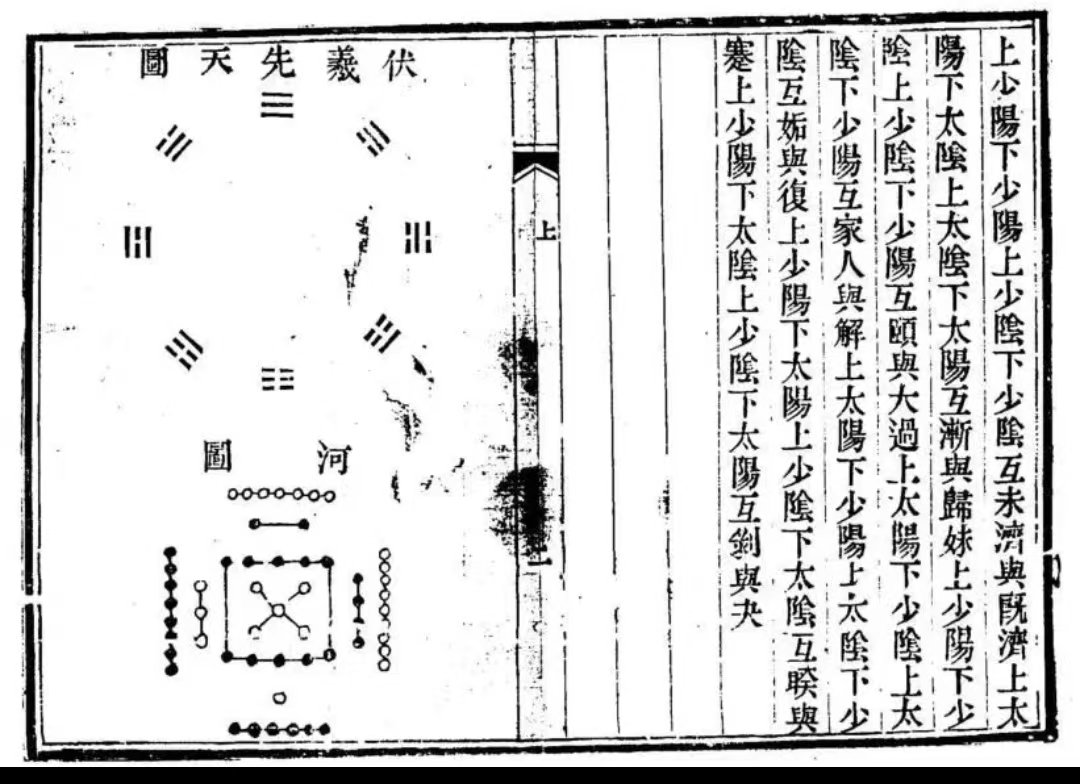 上少陽下少陽上少陰下少陰互未濟與旣濟上太
陽下太陰上太陰下太陽互漸與歸妹上少陽下少
陰上少陰下少陽互頤與大過上太陽下少陰上太
陰下少陽互家人與解上太陽下少陽上太陰下少
陰互姤與復上少陽下太陽上少陰下太陰互睽與
蹇上少陽下太陰上少陰下太陽互剝與夬
上
二
伏羲先天圖
河圖